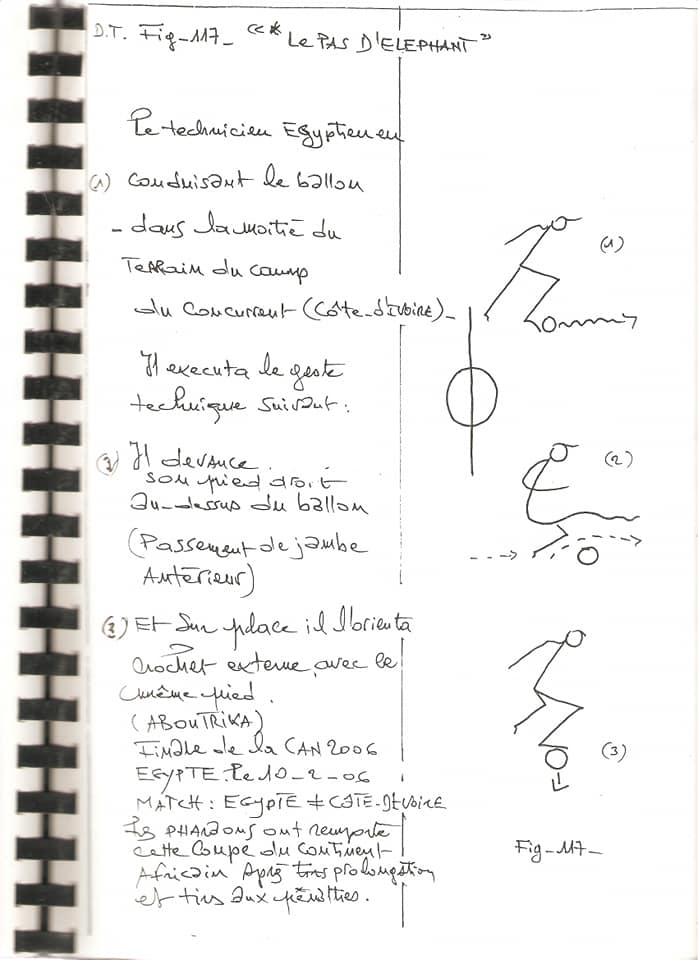 D.T. Fig-117- "* Le PAS D'ELEPHANT"
Le technicien Egyptien en
(1) conduisant le ballon
- dans la moitié du
TERRAIN du camp
du Concurrent (Côte-d'IVOIRE)-
(1)
Il executa le geste
technique suivant :
(2) Il devance
son pied droit
au-dessus du ballon
(Passement de jambe
Antérieur)
(2)
(3) Et sur place il l'orienta
Crochet externe, avec le
même pied.
(ABOUTRIKA)
Finale de la CAN 2006
EGYPTE. Le 10-2-06
MATCH : EGYPTE ≠ CÔTE-D'IVOIRE
Les PHARAONS ont remporté
cette Coupe du Continent
Africain Après prolongation
et tirs aux pénalties.
(3)
Fig-117-